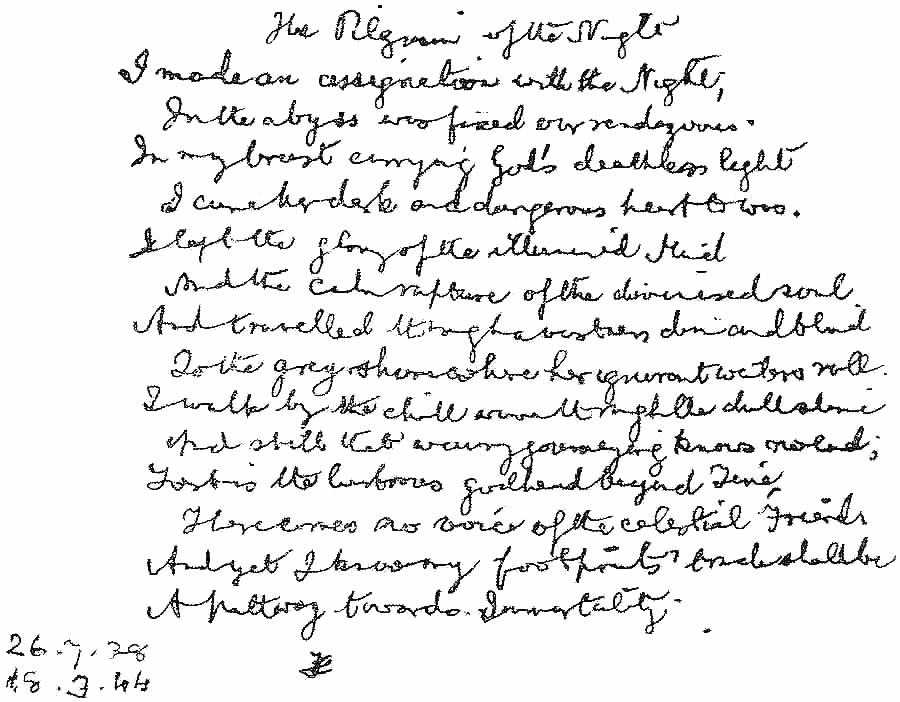 The Pilgrim of the Night
I made an assignation with the Night;
In the abyss was fixed our rendezvous.
In my breast carrying God's deathless light
I came her dark and dangerous heart to woo.
I left the glory of the illumined Mind
And the calm rapture of the divinised soul
And travelled through a vastness dim and blind
To the grey shore where her ignorant waters roll.
I walk by the chill wave through the dull slime
And still that weary journeying knows no end;
Lost is the lustrous godhead beyond Time,
There comes no voice of the celestial Friend.
And yet I know my footprints' track shall be
A pathway towards Immortality.
26.7.38
18.3.44